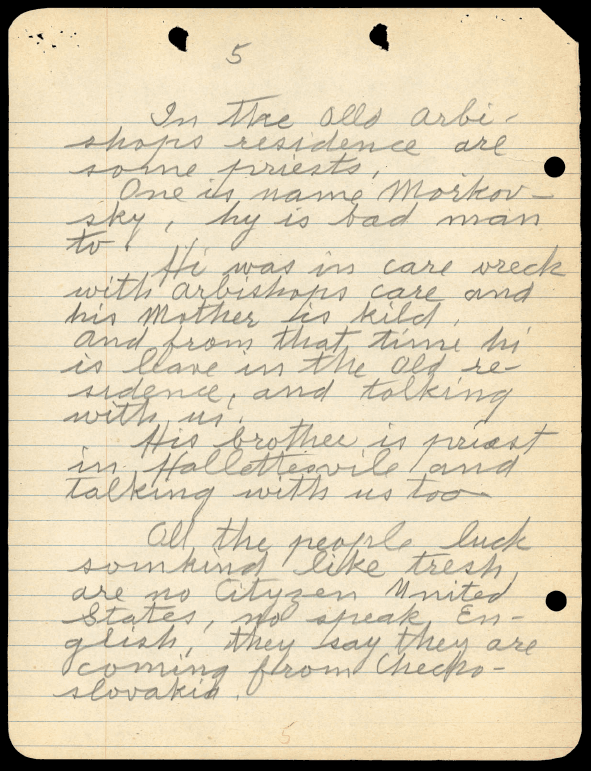 5
In the Olld Arbi-
shops residence are
some priests,
One is name Morkov-
sky, hy is bad man
to.
Hi was in care vreck
with Arbishops care and
his Mother is kild,
and from that time hi
is leave in the Old re-
sidence, and tolking
with us.
His brother is priest
in Hallettesvile and
talking with us too
All the people luck
somkind like tresh,
are no Cityzen United
States, no speak En-
glish, they say they are
coming from Checko-
slovakia.
5